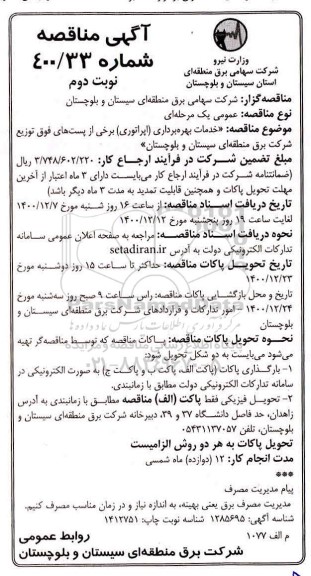 آگهی مناقصه
شماره ۴۰۰/۳۳
نوبت دوم
وزارت نیرو
شرکت سهامی برق منطقه‌ای
استان سیستان و بلوچستان
مناقصه‌گزار: شرکت سهامی برق منطقه‌ای سیستان و بلوچستان
نوع مناقصه: عمومی یک مرحله‌ای
موضوع مناقصه: «خدمات بهره‌برداری (اپراتوری) برخی از پست‌های فوق توزیع
شرکت برق منطقه‌ای سیستان و بلوچستان»
مبلغ تضمین شرکت در فرآیند ارجاع کار: ۳/۷۴۸/۶۰۲/۲۲۰ ریال
(ضمانتنامه شرکت در فرآیند ارجاع کار می‌بایست دارای ۳ ماه اعتبار از آخرین
مهلت تحویل پاکات و همچنین قابلیت تمدید به مدت ۳ ماه دیگر باشد)
تاریخ دریافت اسناد مناقصه: از ساعت ۱۶ روز شنبه مورخ ۱۴۰۰/۱۲/۷
لغایت ساعت ۱۹ روز پنجشنبه مورخ ۱۴۰۰/۱۲/۱۲
نحوه دریافت اسناد مناقصه: مراجعه به صفحه اعلان عمومی سامانه
تدارکات الکترونیکی دولت به آدرس setadiran.ir
تاریخ تحویل پاکات مناقصه: حداکثر تا ساعت ۱۵ روز دوشنبه مورخ
۱۴۰۰/۱۲/۲۳
تاریخ و محل بازگشایی پاکات مناقصه: راس ساعت ۹ صبح روز سه‌شنبه مورخ
۱۴۰۰/۱۲/۲۴ - امور تدارکات و قراردادهای شرکت برق منطقه‌ای سیستان و
بلوچستان
نحوه تحویل پاکات مناقصه: پاکات مناقصه که توسط مناقصه‌گر تهیه
می‌شود می‌بایست به دو شکل تحویل شود:
۱- بارگذاری پاکات (پاکت الف، پاکت ب و پاکت ج) به صورت الکترونیکی در
سامانه تدارکات الکترونیکی دولت مطابق با زمانبندی.
۲- تحویل فیزیکی فقط پاکت (الف) مناقصه مطابق با زمانبندی به آدرس
زاهدان، حد فاصل دانشگاه ۳۷ و ۳۹، دبیرخانه شرکت برق منطقه‌ای سیستان و
بلوچستان، تلفن ۰۵۴۳۱۱۳۷۰۵۷
تحویل پاکات به هر دو روش الزامیست
مدت انجام کار: ۱۲ (دوازده) ماه شمسی
***
پیام مدیریت مصرف
مدیریت مصرف برق یعنی بهینه، به اندازه نیاز و در زمان مناسب مصرف کنیم.
شناسه آگهی: ۱۲۸۵۶۹۵ شناسه نوبت چاپ: ۱۴۱۲۷۵۱
م الف ۱۰۷۷
روابط عمومی
شرکت برق منطقه‌ای سیستان و بلوچستان